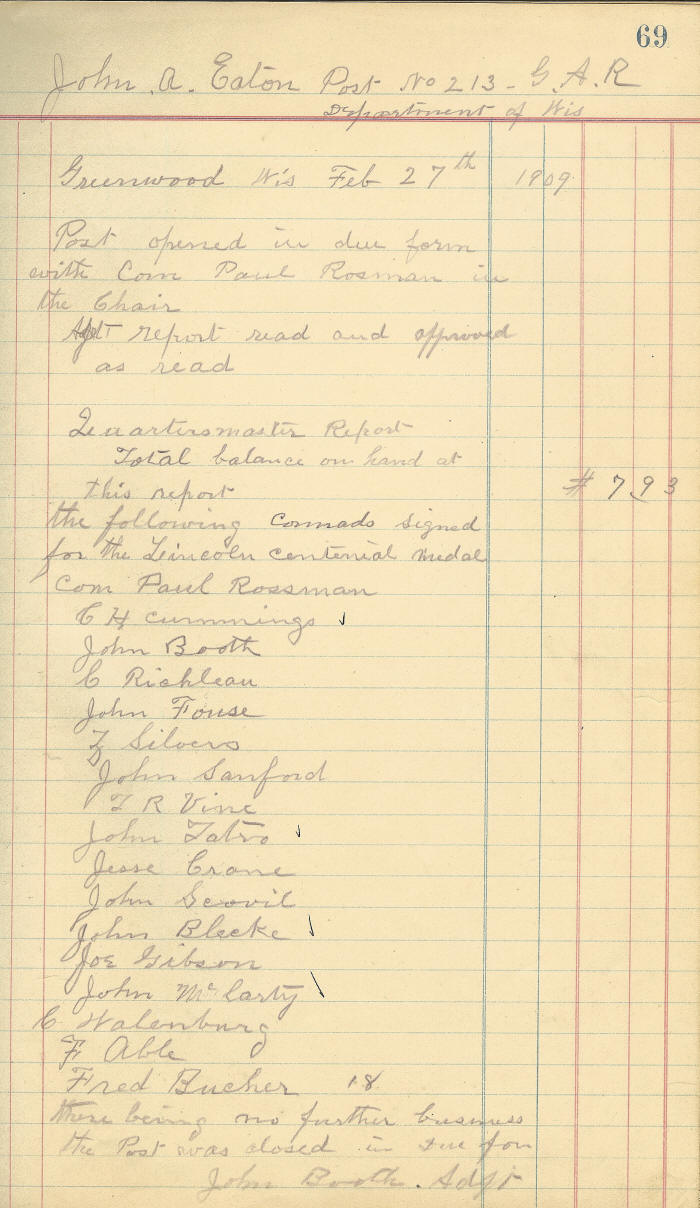 69
John . A . Eaton Post No 213 - G. A. R
Department of Wis
Greenwood Wis Feb 27th 1909
Post opened in due form
with Com Paul Rosman in
the Chair
Adjt report read and approved
as read
Quartersmaster Report
Total balance on hand at
this report # 7,93
the following Comrads signed
for the Lincoln centenial medal
Com Paul Rossman
C H cummings
John Booth
C Richleau
John Fouse
Z Silvers
John Sanford
T R Vine
John Tatro
Jesse Crane
John Scovil
John Blecke
Joe Gibson
John McCarty
C Walenburg
F Able
Fred Bucher 18
there being no further business
the Post was closed in due for
John Booth . Adjt